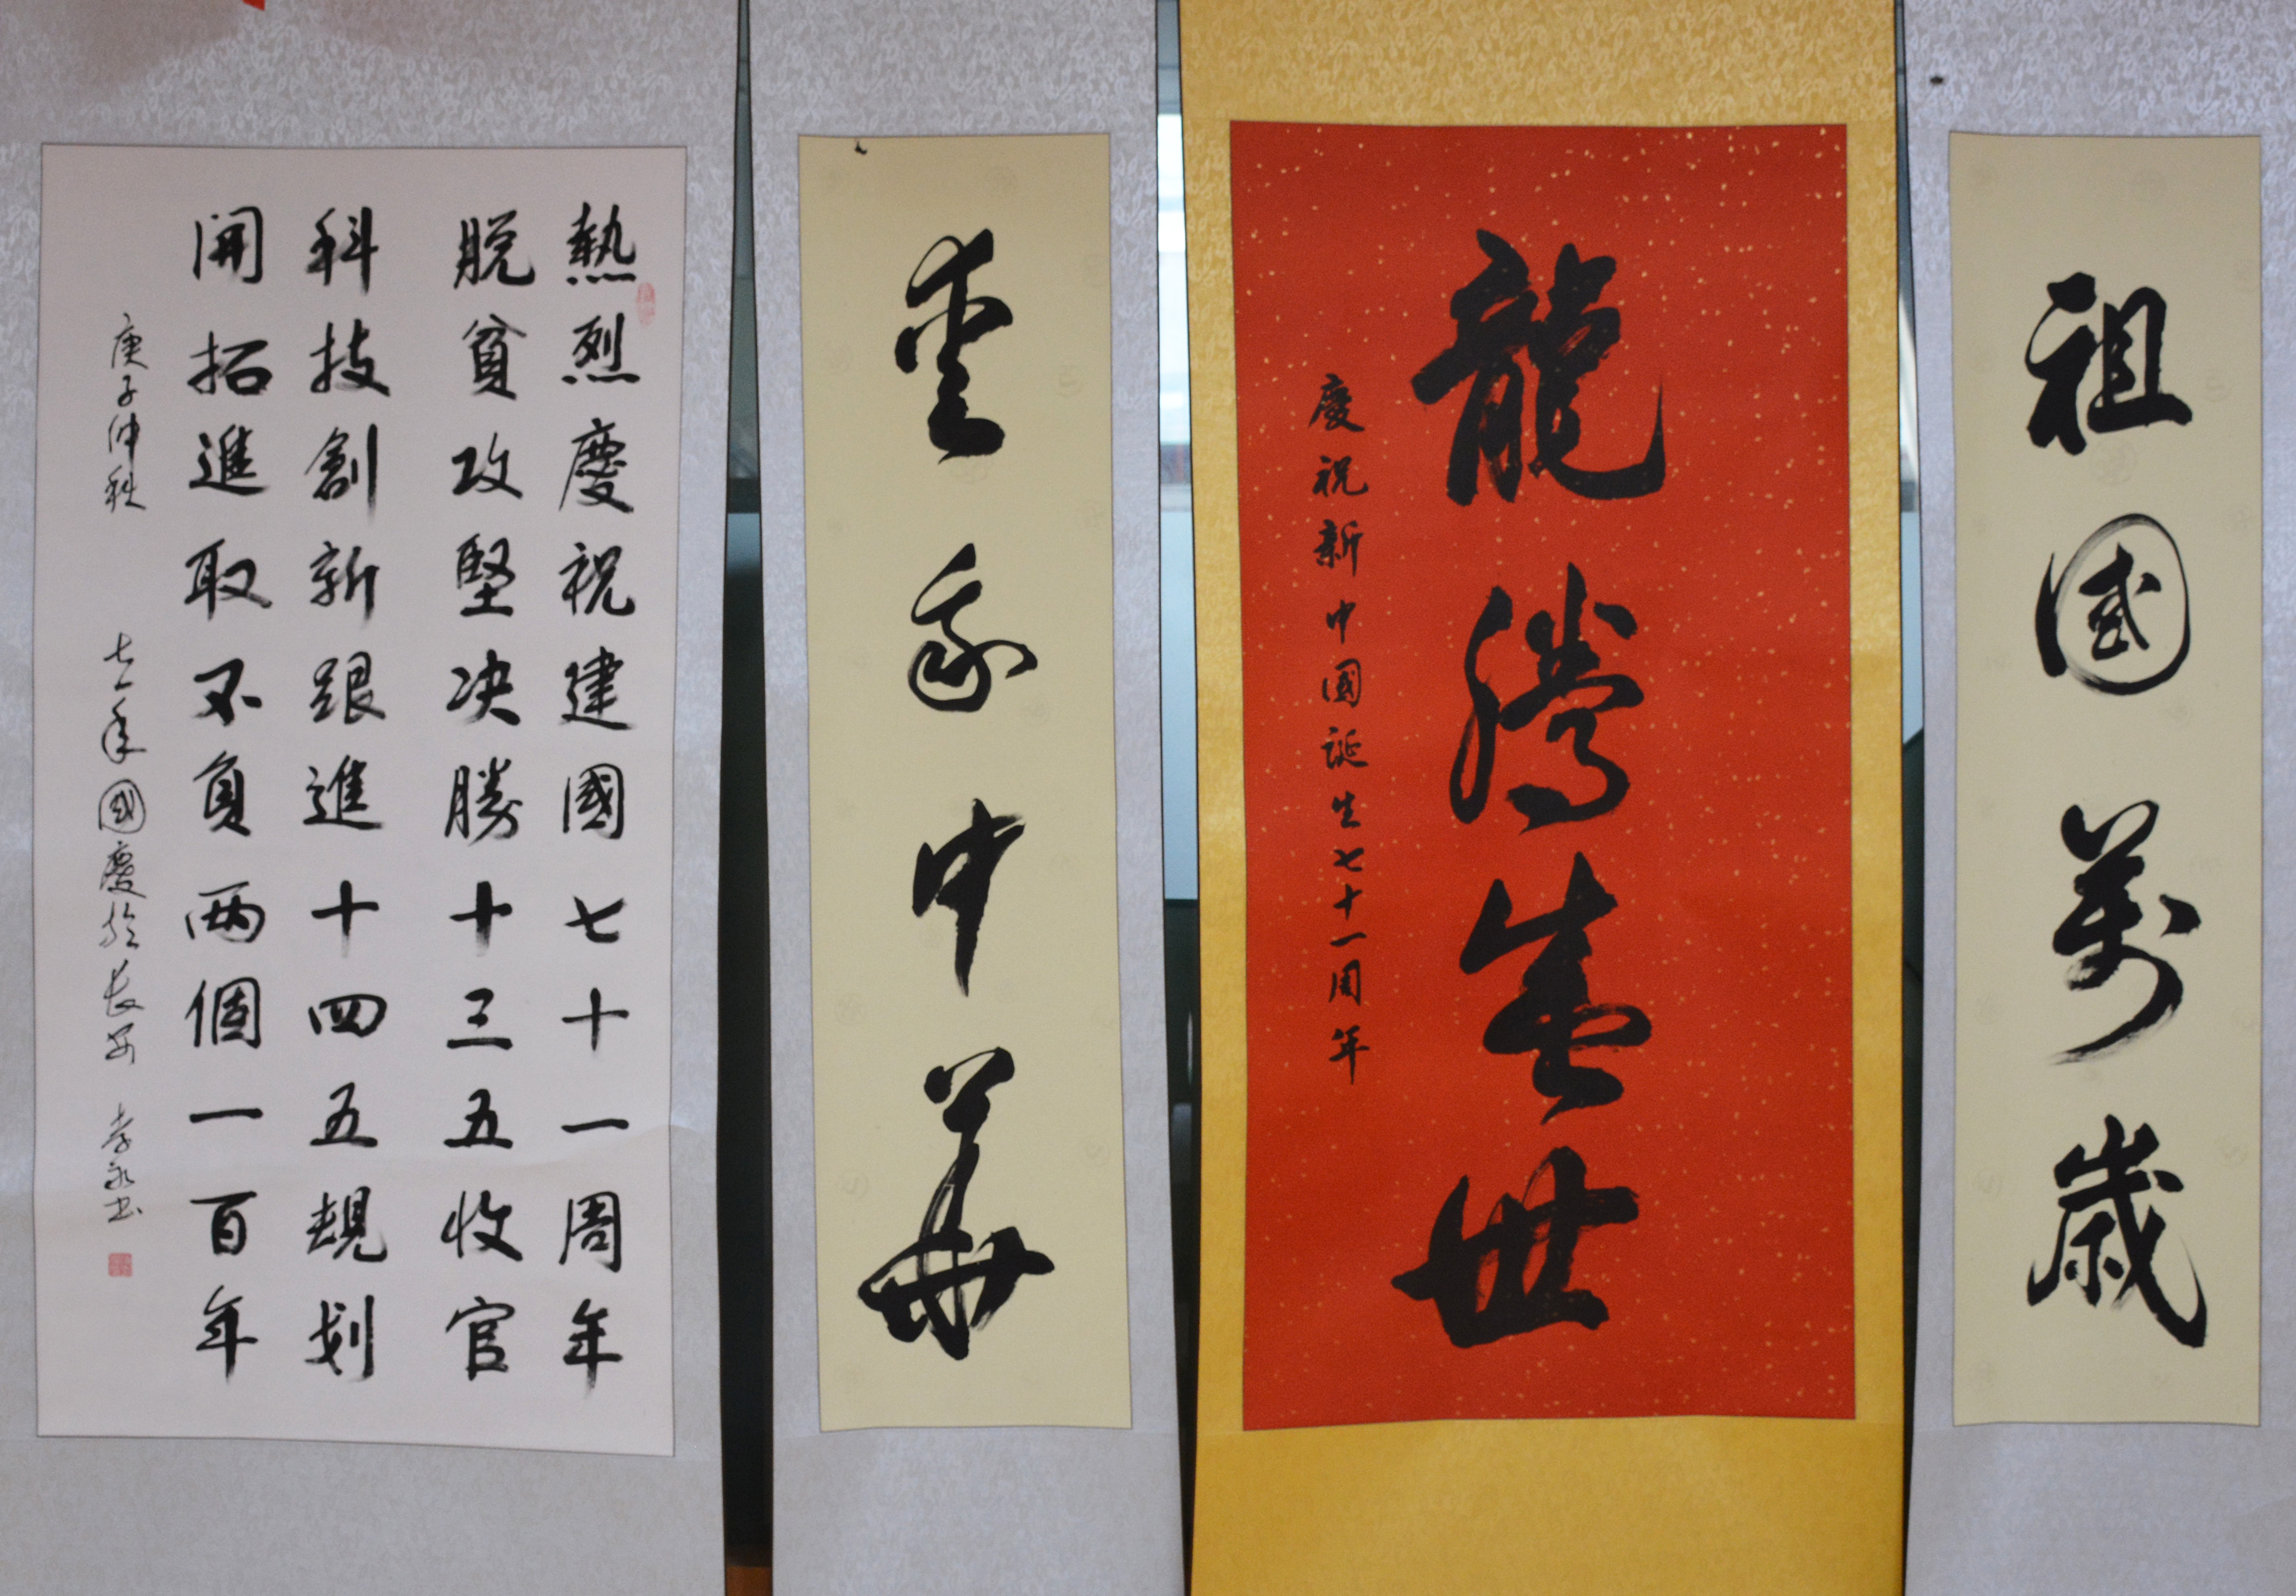 祖國萬歲
龍騰盛世
慶祝新中國誕生七十一周年
愛我中華
熱烈慶祝建國七十一周年
脫貧攻堅決勝十三五收官
科技創新跟進十四五規划
開拓進取不負两個一百年
庚子仲秋 七一年國慶於長安 孝永书